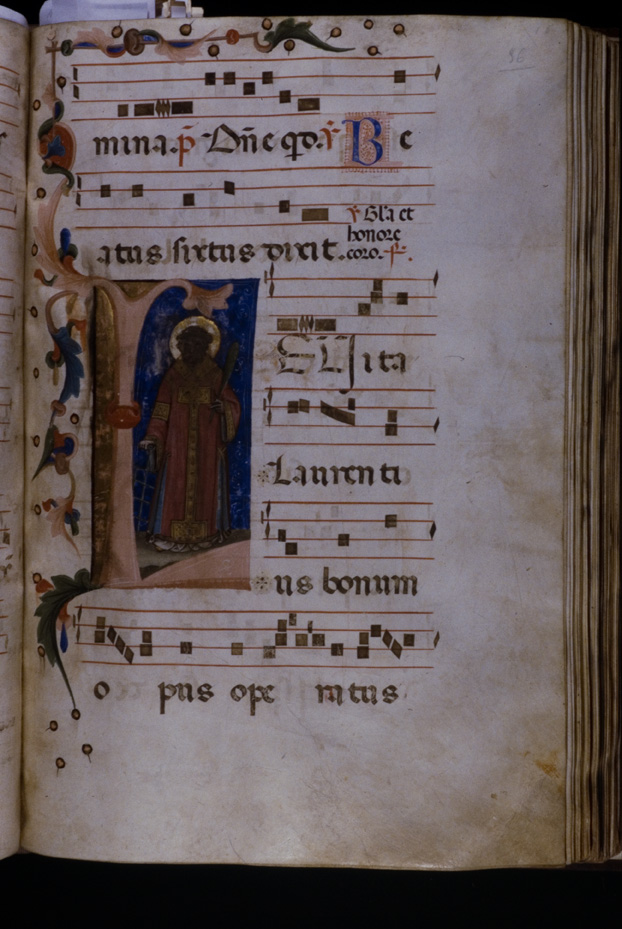 96
mina. p̄ Dñe qđ. ℣ Be
atus sixtus dixit.
℣ Gl'a et
honore
coro.
LEuita
Laurenti
us bonum
o pus ope ratus